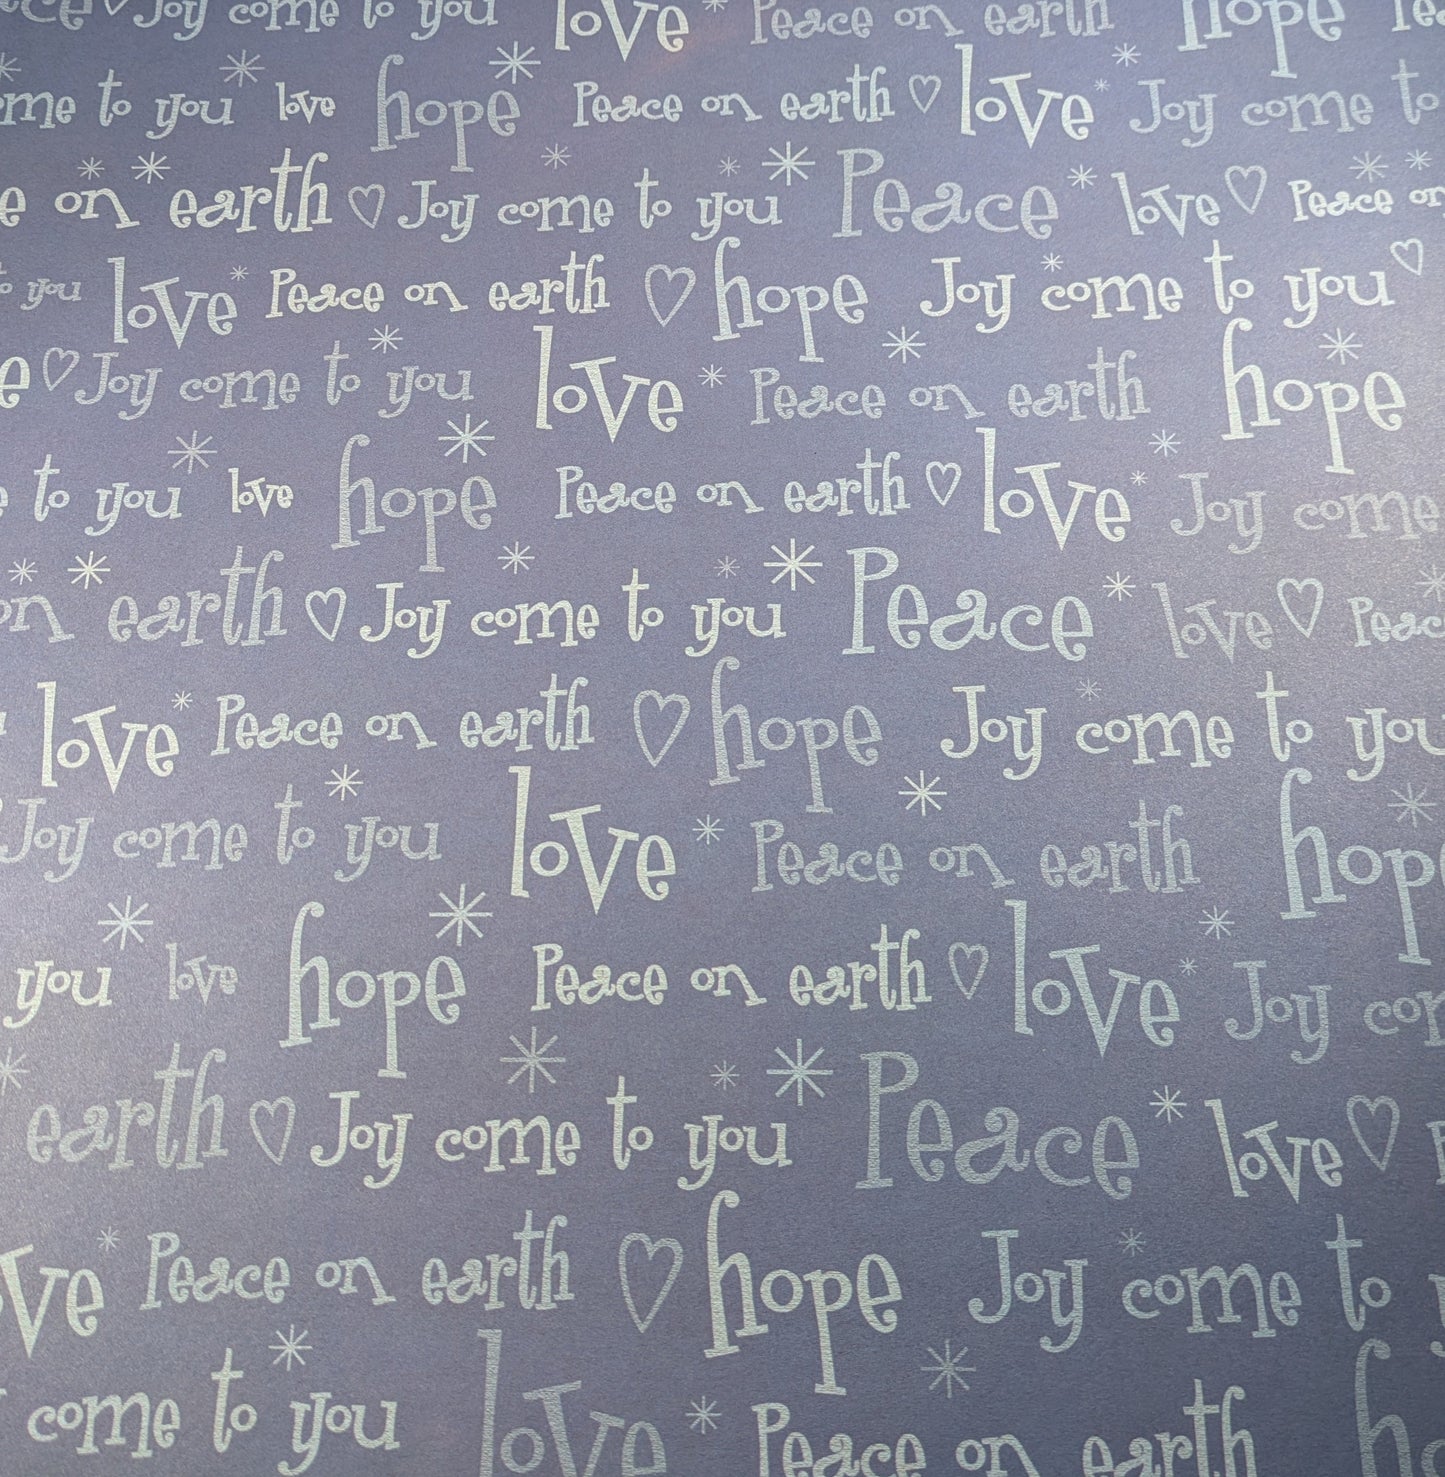 Joy come to you love Peace on earth hope
come to you love hope Peace on earth love Joy come to
on earth Joy come to you Peace love Peace on
to you love Peace on earth hope Joy come to you
Joy come to you love Peace on earth hope
to you love hope Peace on earth love Joy come
on earth Joy come to you Peace love Peace
love Peace on earth hope Joy come to you
Joy come to you love Peace on earth hope
you love hope Peace on earth love Joy com
earth Joy come to you Peace love
ove Peace on earth hope Joy come to
come to you love Peace on earth h